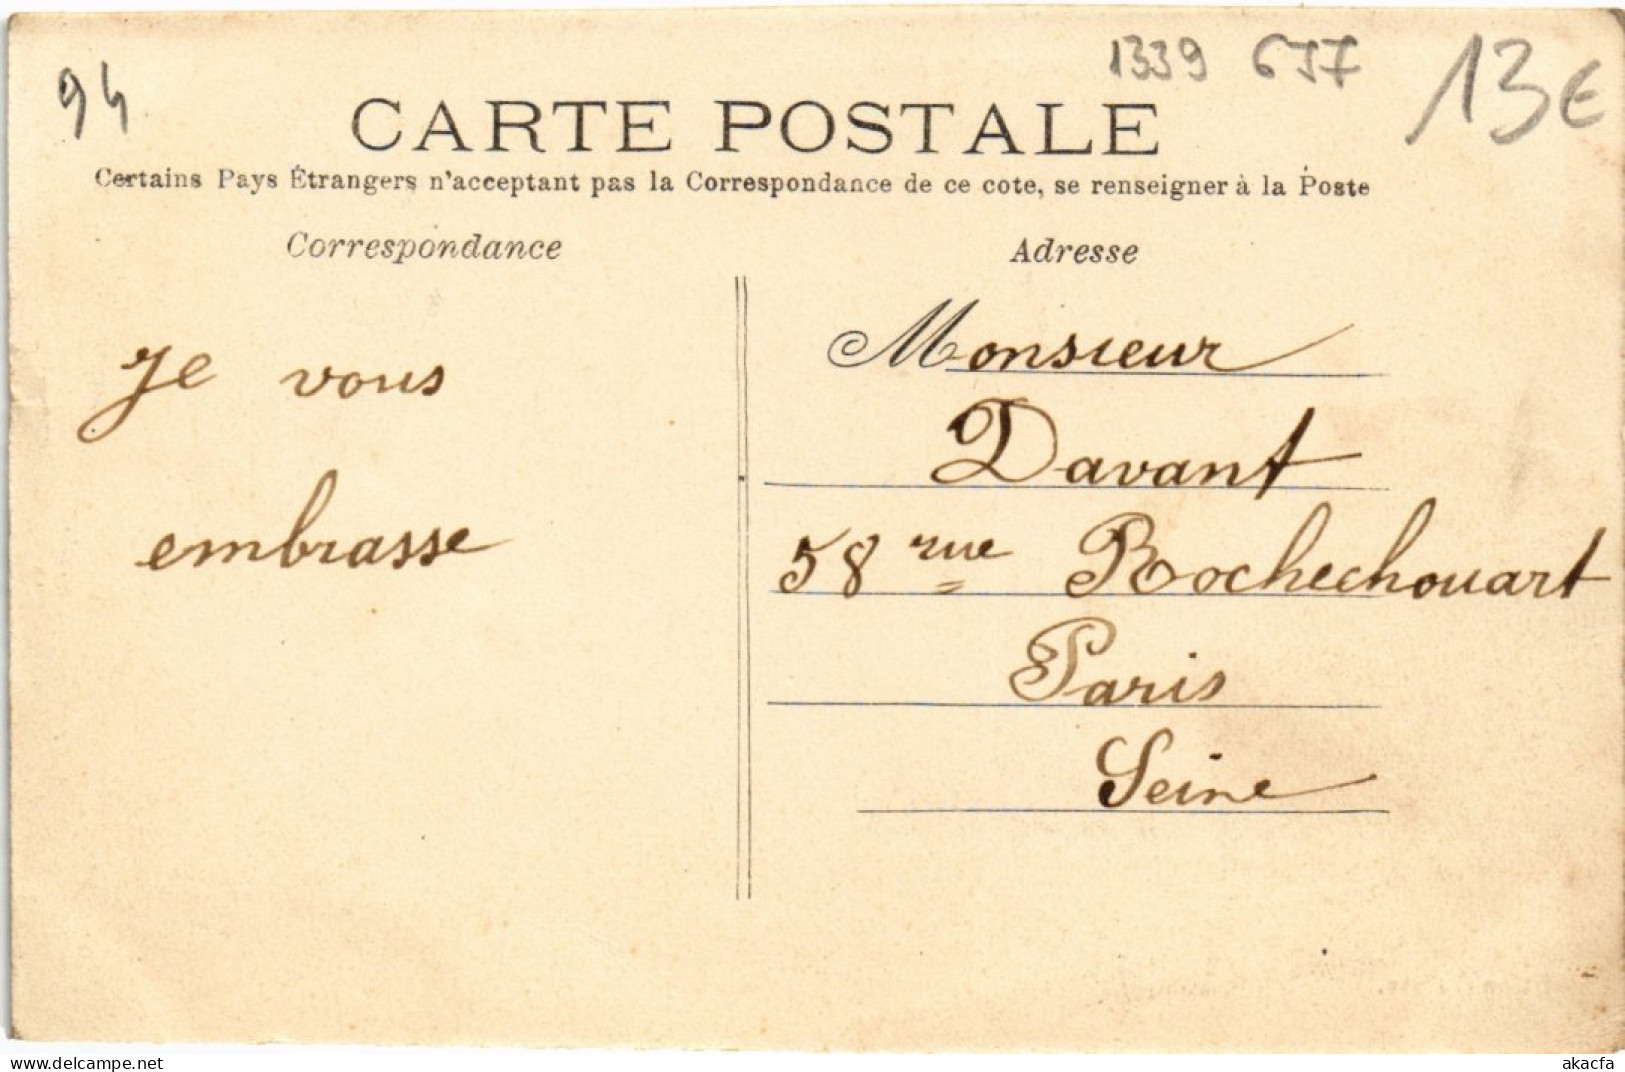 94
1339 657
13€
CARTE POSTALE
Certains Pays Étrangers n'acceptant pas la Correspondance de ce cote, se renseigner à la Poste
Correspondance
Adresse
Je vous
embrasse
Monsieur
Davant
58 rue Rochechouart
Paris
Seine
delcampe.net
akacfa